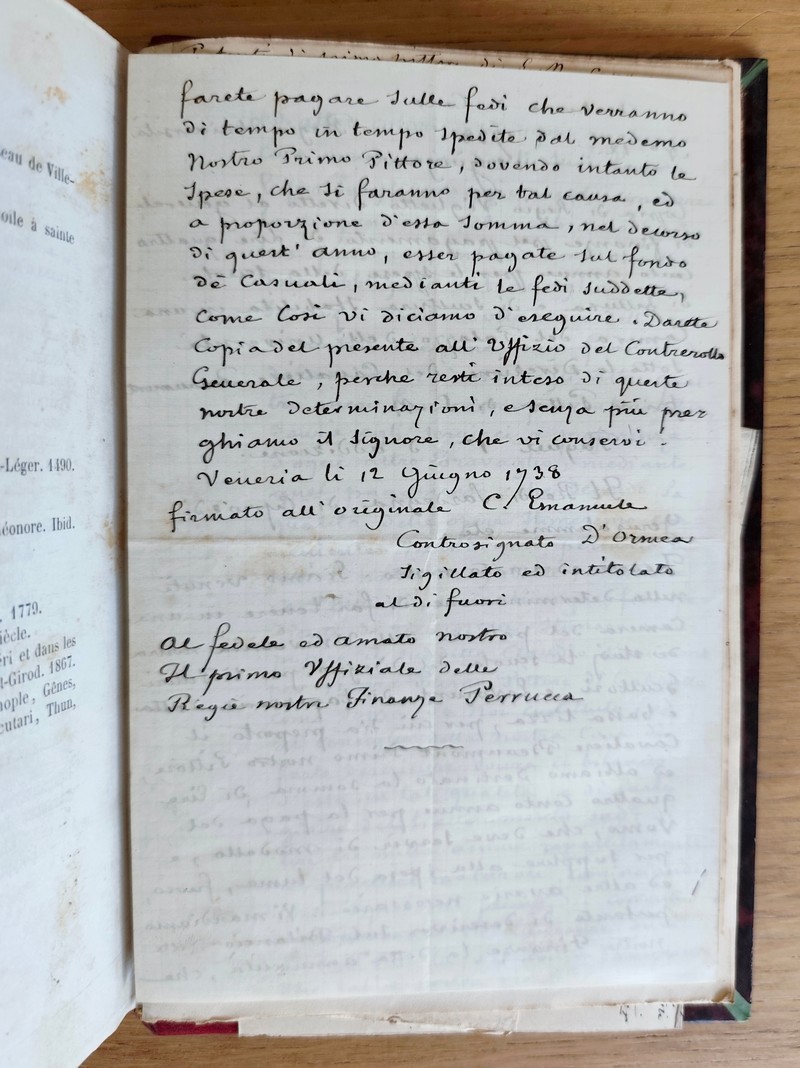 eau de Ville-
oile à sainte
-Léger. 1490.
éonore. Ibid.
. 1779.
iècle.
éri et dans les
t-Girod. 1867.
nople, Gênes,
cutari, Thun,
farete pagare sulle fedi che verranno
di tempo in tempo spedite dal medemo
Nostro Primo Pittore, dovendo intanto le
spese, che si faranno per tal causa, ed
a proporzione d'essa somma, nel decorso
di quest' anno, esser pagate sul fondo
dè Casuali, medianti le fedi suddette,
come così vi diciamo d'eseguire. Darete
Copia del presente all' Uffizio del Controrollo
Generale, perche resti inteso di queste
nostre determinazioni, e senza più pre=
ghiamo il Signore, che vi conservi.
Veneria li 12 Giugno 1738
firmato all' originale C. Emanuele
Controsignato D'Ormea
Sigillato ed intitolato
al di fuori
Al fedele ed amato nostro
Il primo Uffiziale delle
Regie nostre Finanze Perrucca